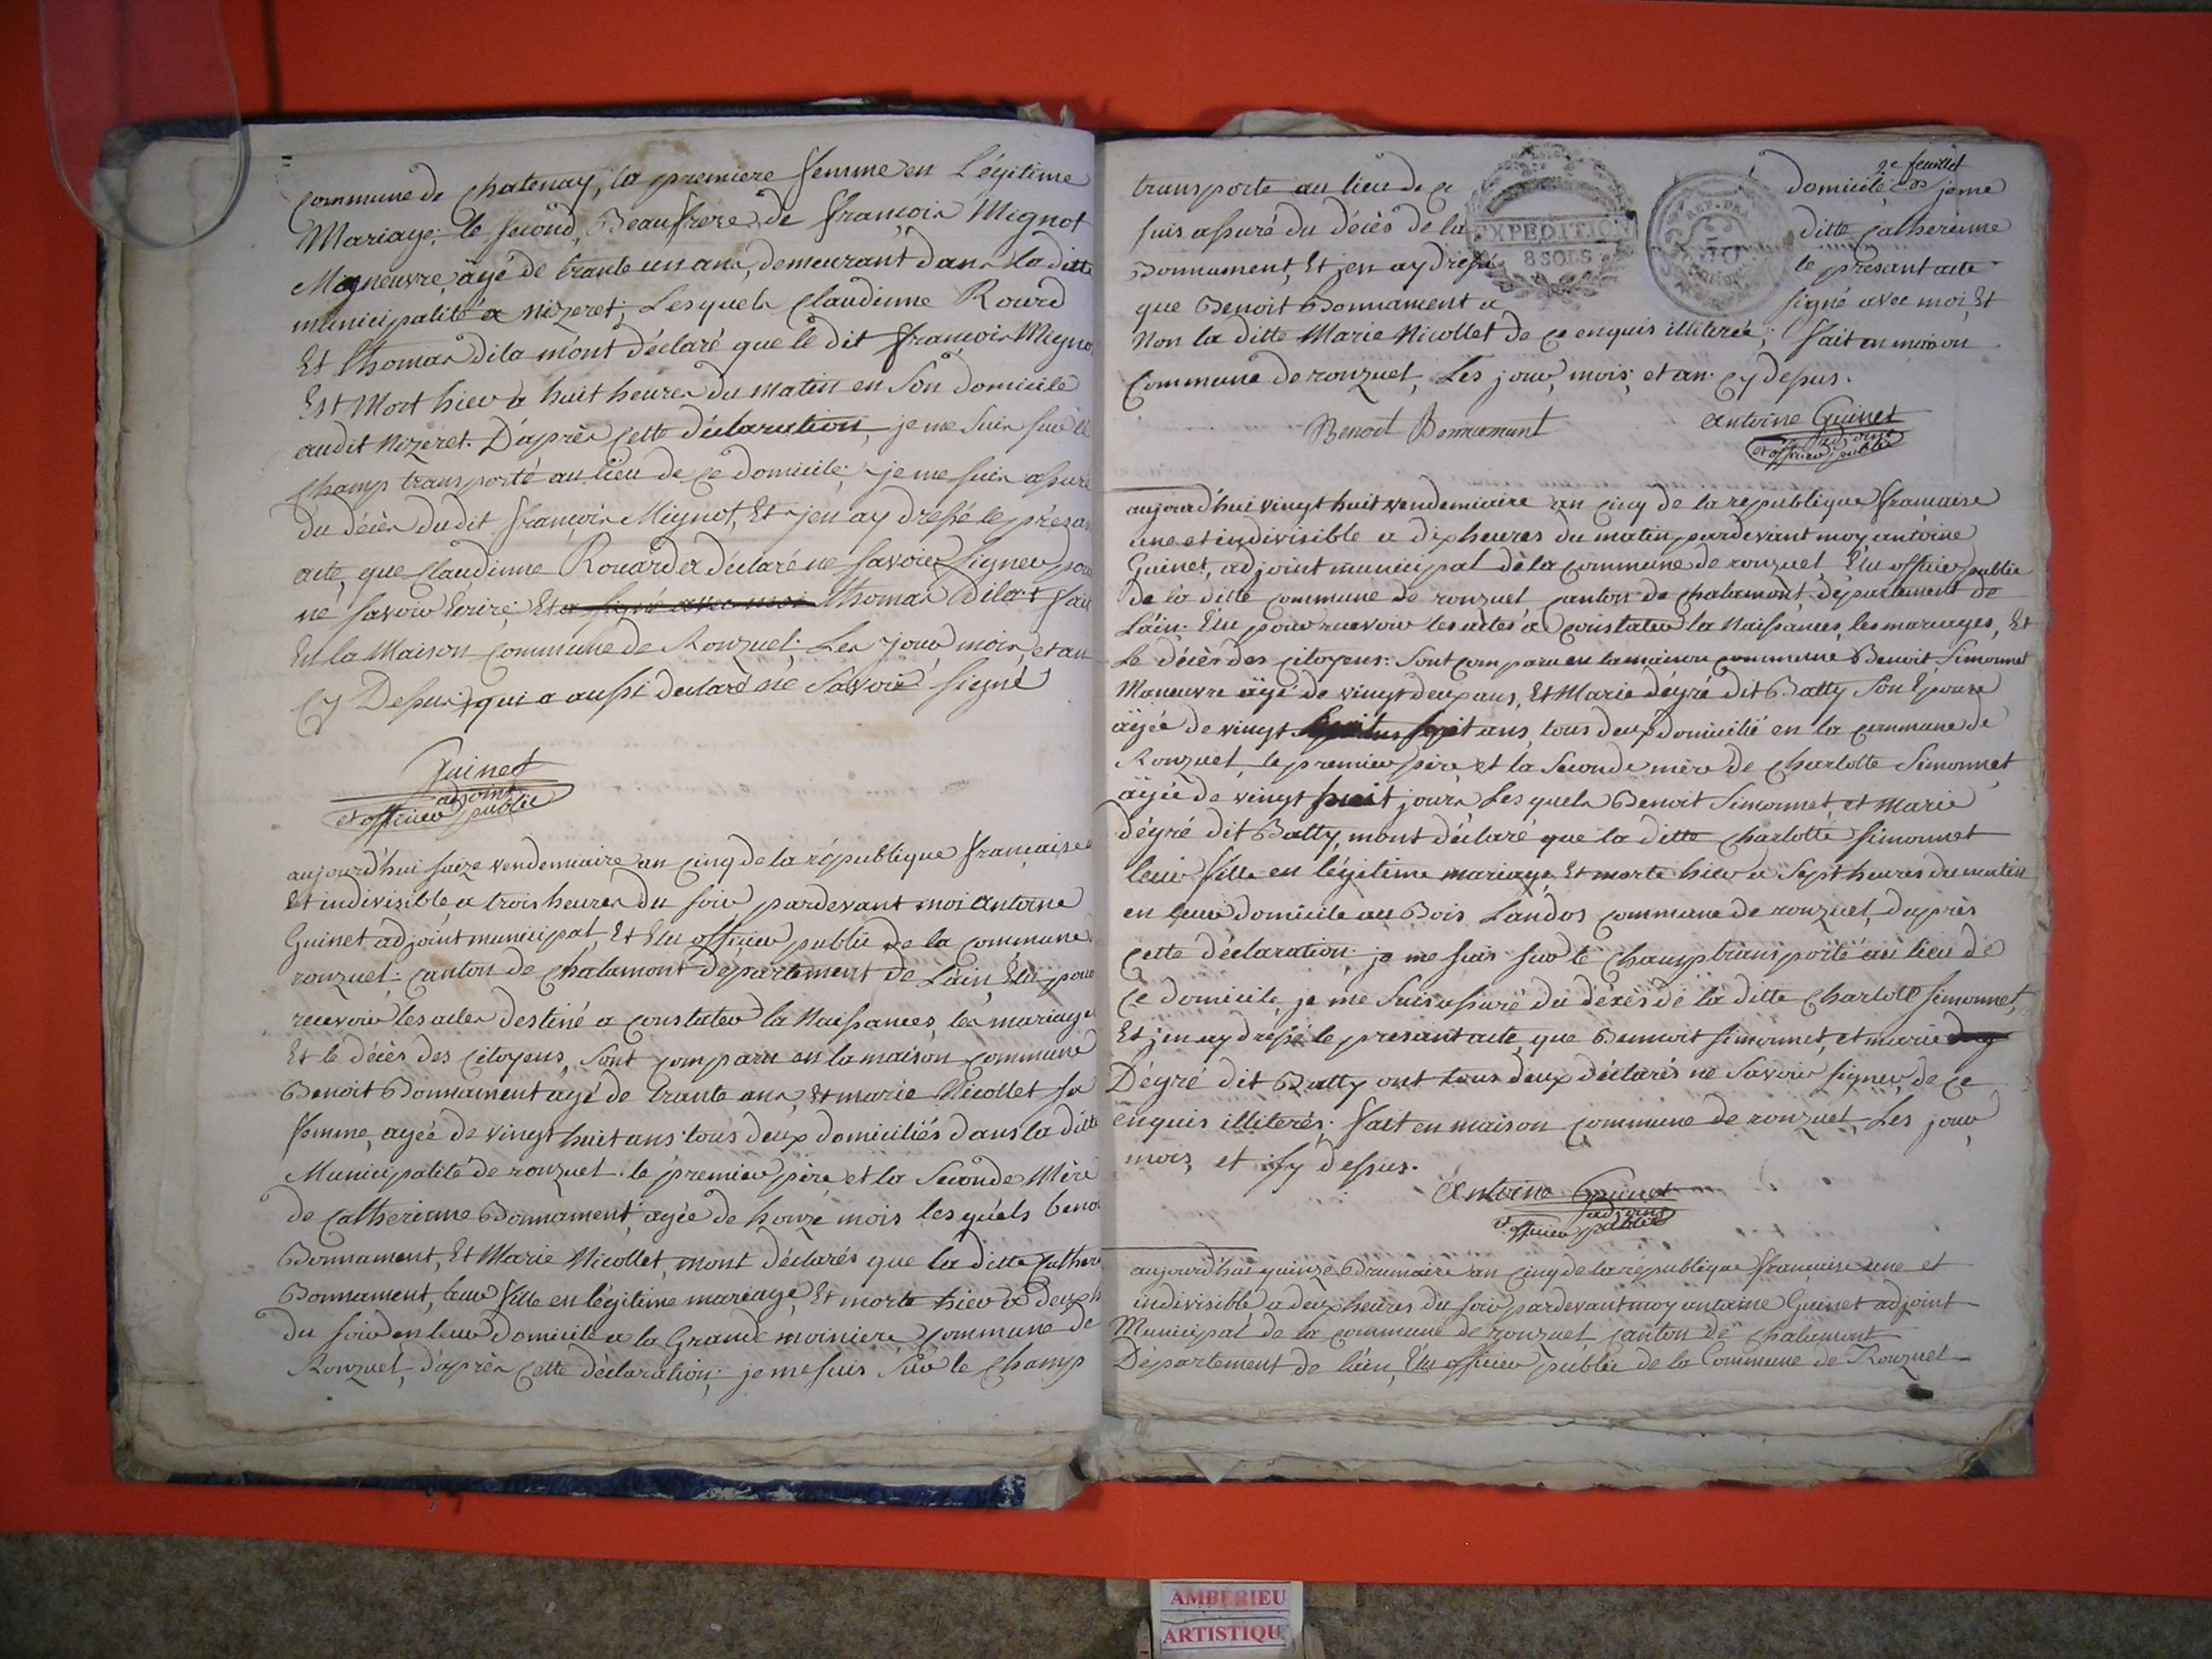 commune de chatenay, la premiere femme en Légitime
Mariage; le second, Beaufrere de françois Mignot
Magneuvre, âgé de trante un ans, demeurant dans la ditte
municipalité a Nizeret; Lesquels Claudinne Rouard
Et Thomas Dila m'ont déclaré que le dit françois Migno
Est Mort hier a huit heures du matin en Son domicile
audit Nizeret. D'après cette déclaration, je me suis sur le
champ transporté au lieu de ce domicile; je me suis assuré
du décès dudit françois Mignot, Et j'en ay dressé le présan
acte, que Claudinne Rouard a déclaré ne savoir signer pour
ne savoir Ecrire; Et a signé avec moi Thomas Dila + fait
En la Maison commune de Ronzuel; Les jour, mois, et an
Cy Depus + qui a aussi declaré ne Savoir signé
Guinet
adjoint
et officier public
aujourd'hui saize vendemiaire an cinq de la république française
Et indivisible, a trois heures du soir pardevant moi Antoine
Guinet, adjoint municipal, Et Elu officier public de la commune
ronzuel; canton de chalamont département de Láin, Elu pour
recevoir les actes destiné a constater la Naissances, les mariages
Et le décès des citoyens, sont comparu en la maison commune
Benoit Bonnament agé de trante ans, Et marie Nicollet sa
femme, agée de vingt huit ans tous deux domiciliés dans la ditte
Municipalité de ronzuel. le premier père et la Seconde Mère
de Catherinne Bonnament; agée de honze mois les quels beno
Bonnament, Et Marie Nicollet, mont déclarés que la ditte Cather
Bonnament, leur fille en légitime mariage, Et morte hier a deux h
du soir en leur domicile a la Grande moiniere commune de
Ronzuel, d'après cette déclaration; je me suis Sur le champ
2e feuillet
transporte au lieu de ce domicile; je me
suis assuré du décès de la ditte Catherinne
Bonnament, Et j'en ay dressé le présant acte
que Benoit Bonnament a signé avec moi, Et
EXPEDITION
8 SOLS
REP. FRA.
Non la ditte Marie Nicollet de ce enquis illiterée; fait en maison
Commune de ronzuel, Les jour, mois, et an. cy depus.
Benoit Bonnament
Antoine Guinet
adjoint
et officier public
aujourd'hui vingt huit vendemiaire an cinq de la republique francaise
une et indivisible a dix heures du matin, pardevant moy antoine
Guinet, adjoint municipal de la commune de ronzuel, Elu officier public
de la ditte commune de ronzuel canton de chalamont, département de
Láin. Elu pour recevoir les actes a constater la Naissances, les mariages, Et
le décès des citoyens: Sont comparu en la maison commune Benoit Simonnet
Maneuvre âgé de vingt deux ans, Et Marie dégré dit Batty Son Epouse
âgée de vingt sept ans, tous deux domicilié en la commune de
Ronzuel, le premier père, et la Seconde mère de Charlotte Simonnet,
âgée de vingt huit jours, Les quels Benoit Simonnet, et Marie
dégré dit Batty, mont déclaré que la ditte Charlotte Simonnet
leur fille en légitime mariage, Et morte hier a Sept heures du matin
en leur domicile au Bois Landos commune de ronzuel, daprès
cette déclaration; je me suis sur le champ transporté au lieu de
ce domicile, je me Suis assuré du décès de la ditte Charlotte Simonnet,
Et j'en ay dressé le presant acte, que Bennoit Simonnet, et marie
Dégré dit Batty ont tous deux déclarés ne Savoir signer, de ce
enquis illiterés; fait en maison commune de ronzuel, Les jour
mois, et Cy dessus.
Antoine Guinet
adjoint
et officier public
aujourd'hui quinze Brumaire an cinq de la république française une et
indivisible, a deux heures du soir, pardevant moy antoine Guinet adjoint
Municipal de la commune de ronzuel canton de chalamont
Département de láin, Elu officier public de la Commune de Ronzuel
AMBERIEU
ARTISTIQU